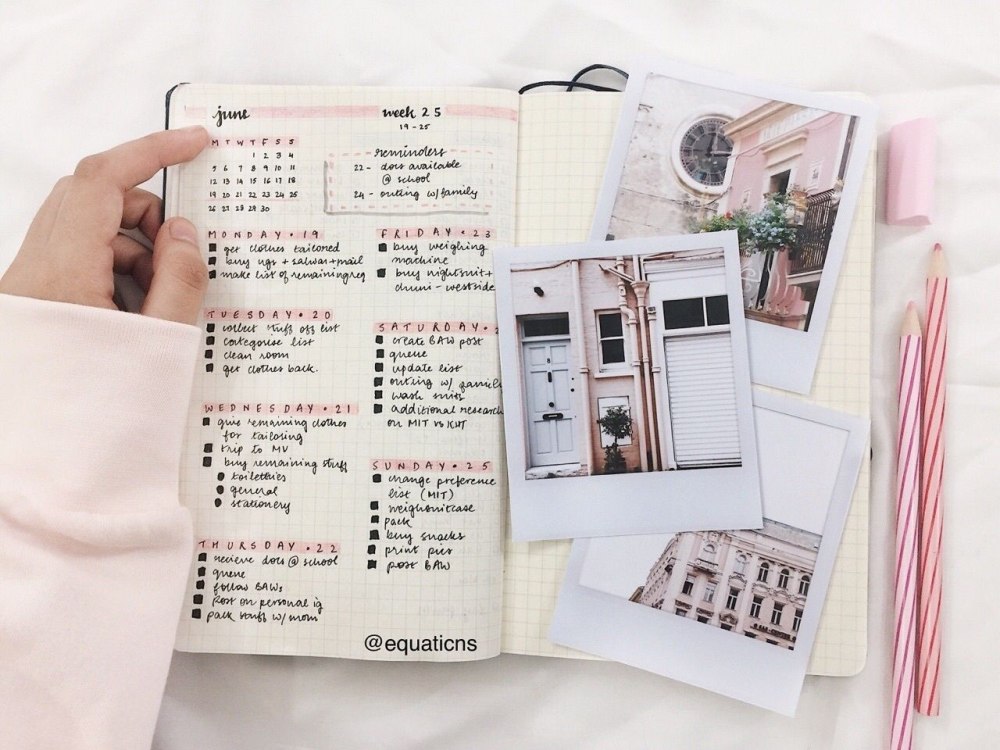 june
week 25
19 - 25
M T W T F S S
1 2 3 4
5 6 7 8 9 10 11
12 13 14 15 16 17 18
19 20 21 22 23 24 25
26 27 28 29 30
reminders
22 - docs available
@ school
24 - outing w/ family
MONDAY • 19
get clothes tailored
buy ugs + salwar + mail
make list of remaining req
TUESDAY • 20
collect stuff off list
categorise list
clean room
get clothes back.
WEDNESDAY • 21
give remaining clothes
for tailoring
trip to MV
buy remaining stuff
toiletries
general
stationery
THURSDAY • 22
recieve docs @ school
queue
follow BAWs
Post on personal ig
pack stuff w/ mom
FRIDAY • 23
buy weighing
machine
buy nightsuit +
chuni - westside
SATURDAY • 2
create BAW post
queue
update list
outing w/ family
wash
additional research
on MIT vs KMT
SUNDAY • 25
change preference
list (MIT)
weigh suitcase
pack
buy snacks
print pics
post BAW
@equaticns
8